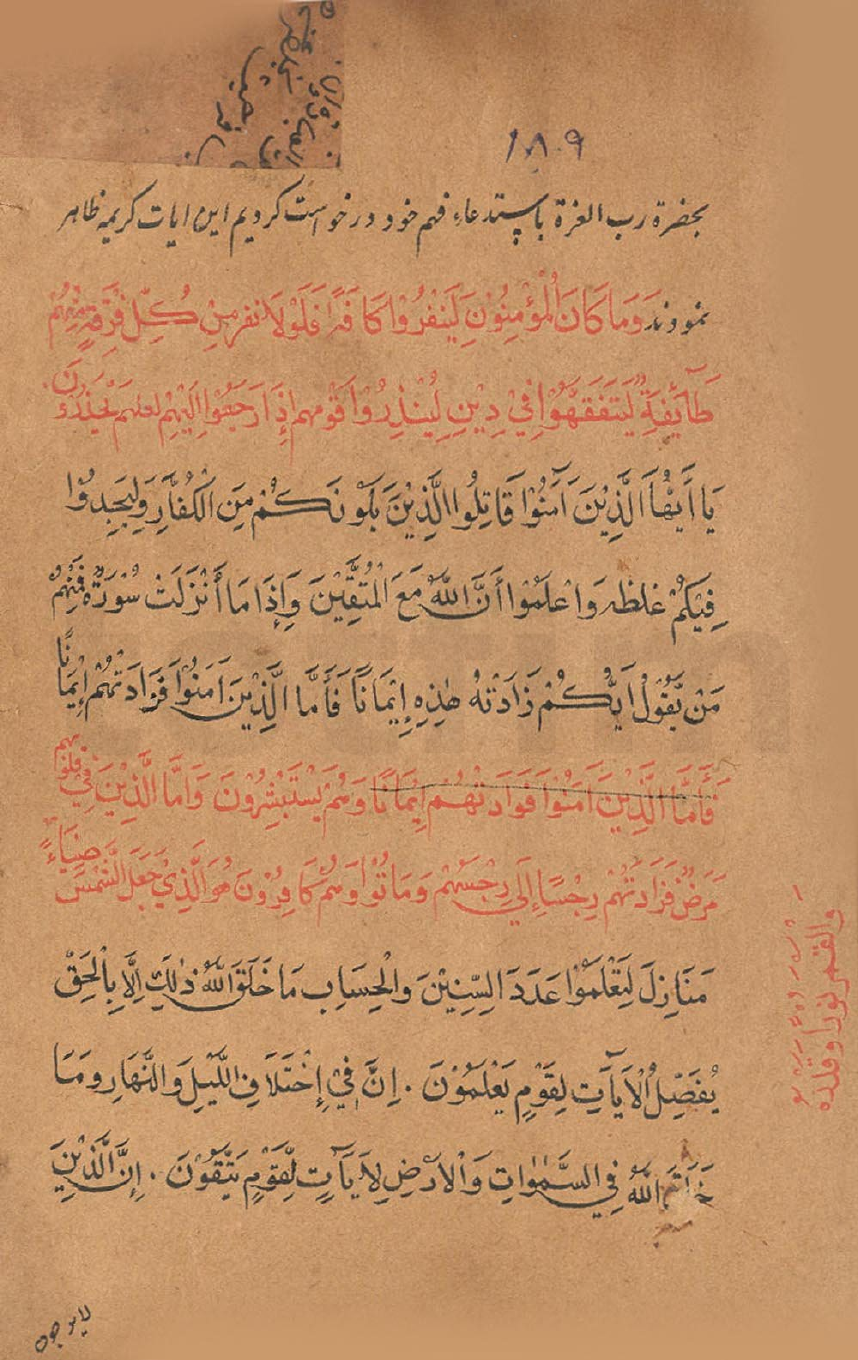 ١٨٠٩
بحضرة رب العزة باستدعاء فهم خود درخواست کردیم این ایات کریمه ظاهر
نمودند وَمَا كَانَ الْمُؤْمِنُونَ لِيَنْفِرُوا كَافَةً فَلَوْلَا نفر مِنْ كُلِّ فِرْقَةٍ مِنْهُمْ
طَآئِفَةٌ لِيَتَفَقَّهُوا فِي دِيْنِ لِيُنْذِرُوا قَوْمهم إِذَا رَجَعُوا إِلَيْهِمْ لعلهم يَحْذَرُونَ
يَا أَيُّهَا الَّذِيْنَ آمَنُوا قَاتِلُوا الَّذِيْنَ يَلَوْنَكُمْ مِنَ الْكُفَّارِ وَلِيَجِدُوا
فِيْكُمْ غلظه وَاعْلَمُوا أَنَّ اللَّهَ مَعَ الْمُتَّقِيْنَ وَإِذَا مَا أُنْزِلَتْ سُوْرَةٌ فَمِنْهُمْ
مَنْ يَقُوْلُ أَيُّكُمْ زَادَتْهُ هٰذِهِ إِيْمَانًا فَأَمَّا الَّذِيْنَ امَنُوْا فَزَادَتْهُمْ إِيْمَانًا
فَأَمَّا الَّذِيْنَ امَنُوْا فَزَادَتْهُمْ إِيْمَانًا وَهُمْ يَسْتَبْشِرُوْنَ وَأَمَّا الَّذِيْنَ فِيْ قلوبهم
مَرَضٌ فَزَادَتْهُمْ رِجْسًا إِلَى رِجْسِهِمْ وَمَاتُوْا وَهُمْ كَافِرُوْنَ هُوَ الَّذِيْ جَعَلَ الشَّمْسَ ضِيَاءً
والقمر نورا وقدره
مَنَازِلَ لِتَعْلَمُوْا عَدَدَ السِّنِيْنَ وَالْحِسَابِ مَا خَلَقَ اللَّهُ ذٰلِكَ إِلَّا بِالْحَقِّ
يُفَصِّلُ الْآيَاتِ لِقَوْمٍ يَعْلَمُوْنَ . اِنَّ فِيْ إِخْتَلَافِ اللَّيْلِ وَالنَّهَارِ وَمَا
خَلَقَ اللَّهُ فِي السَّمٰوَاتِ وَالْأَرْضِ لِاَيَآتٍ لِّقَوْمٍ يَتَّقُوْنَ . إِنَّ الَّذِيْنَ
لا يرجون